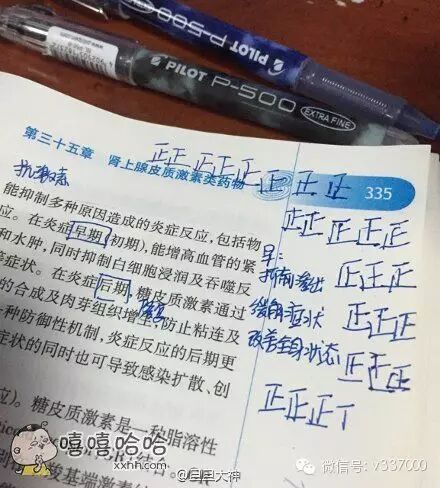 PILOT P-500
PILOT P-500 EXTRA FINE
第三十五章 肾上腺皮质激素类药物 335
正正正正正正正正
能抑制多种原因造成的炎症反应,包括物
正正正正正
应。在炎症早期(初期),能增高血管的紧
早:
和水肿,同时抑制白细胞浸润及吞噬反
抑制渗出
正正正
等症状。在炎症后期,糖皮质激素通过
缓解症状
正正正
的合成及肉芽组织增生,防止粘连及
改善全身状态
正正正
一种防御性机制,炎症反应的后期更
症状的同时也可导致感染扩散、创
正正正丅
应)。糖皮质激素是一种脂溶性
嘻嘻哈哈
xxhh.com
@逗逗大神
微信号: v337000